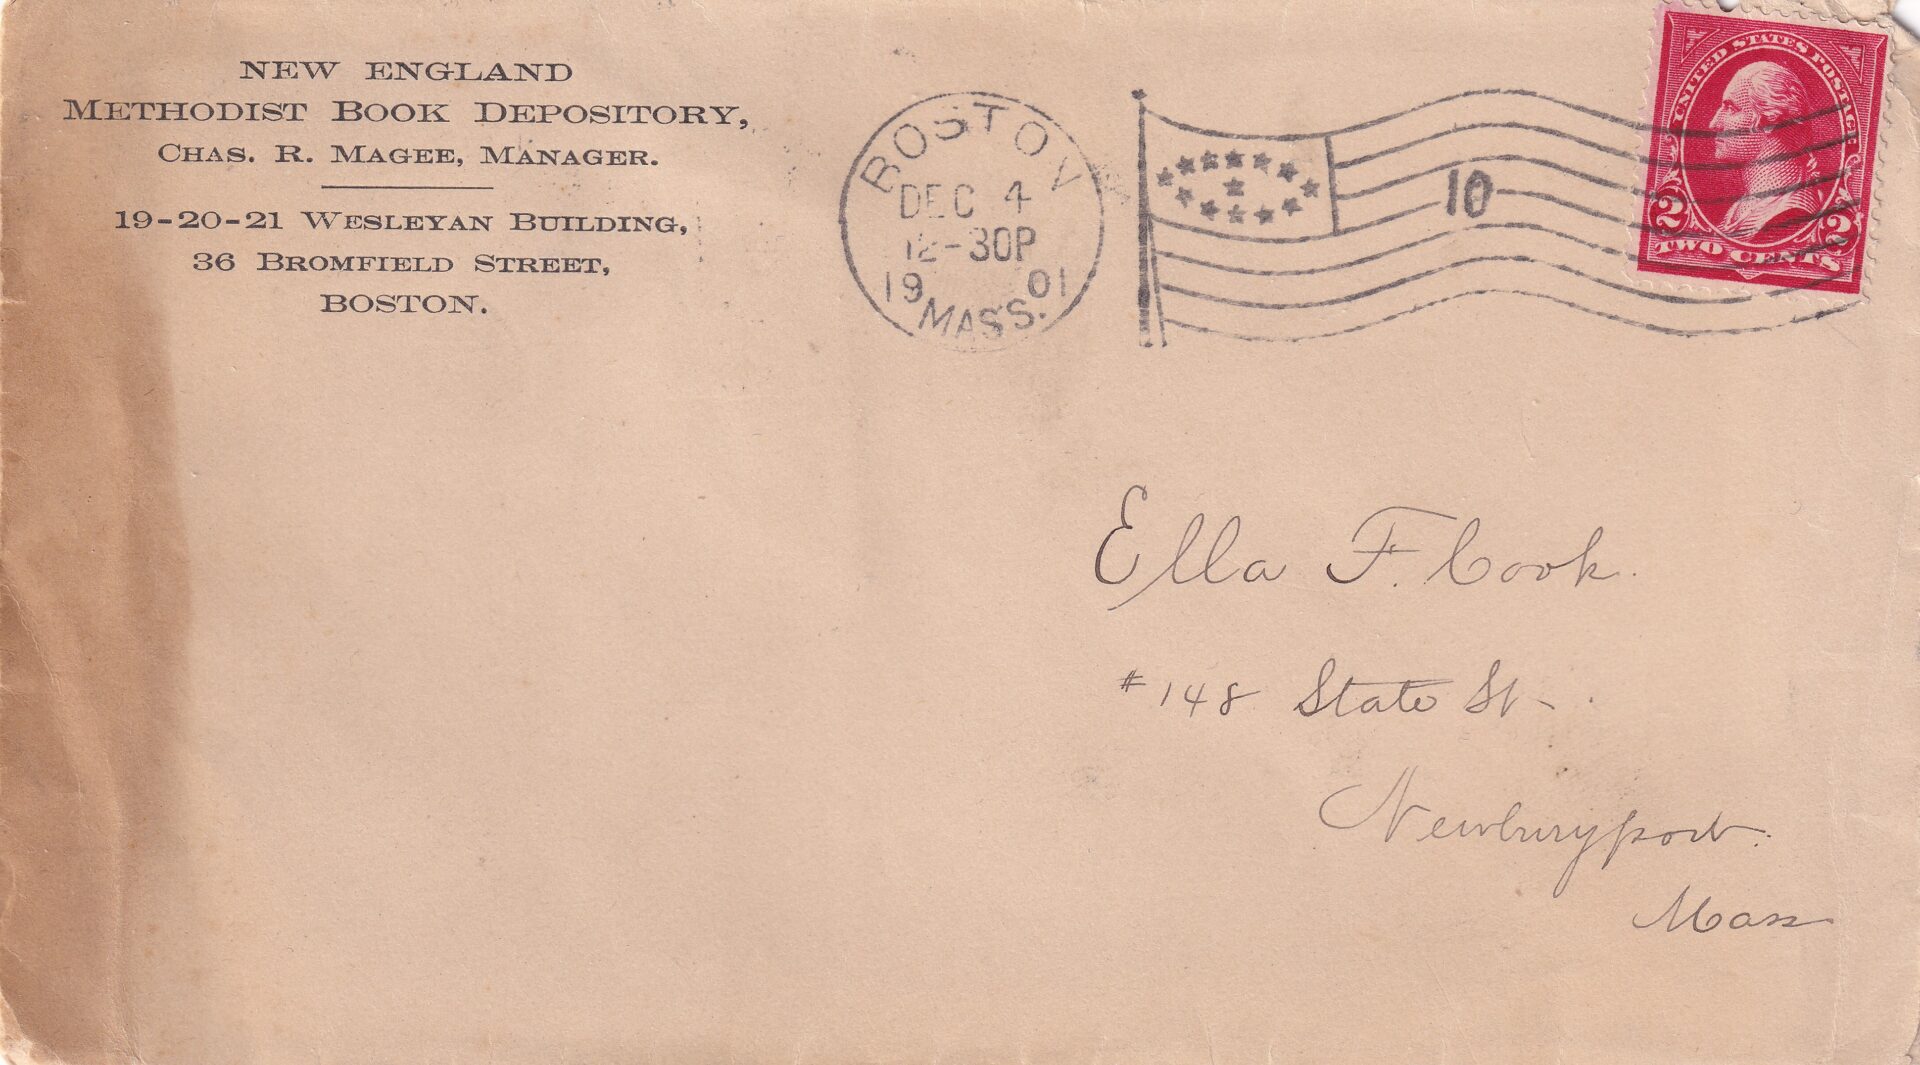 NEW ENGLAND
METHODIST BOOK DEPOSITORY,
CHAS. R. MAGEE, MANAGER.
19-20-21 WESLEYAN BUILDING,
36 BROMFIELD STREET,
BOSTON.
BOSTON
DEC 4
12-30P
19 01
MASS.
10
UNITED STATES POSTAGE
2 2
TWO CENTS
Ella F. Cook.
#148 State St.
Newburyport.
Mass